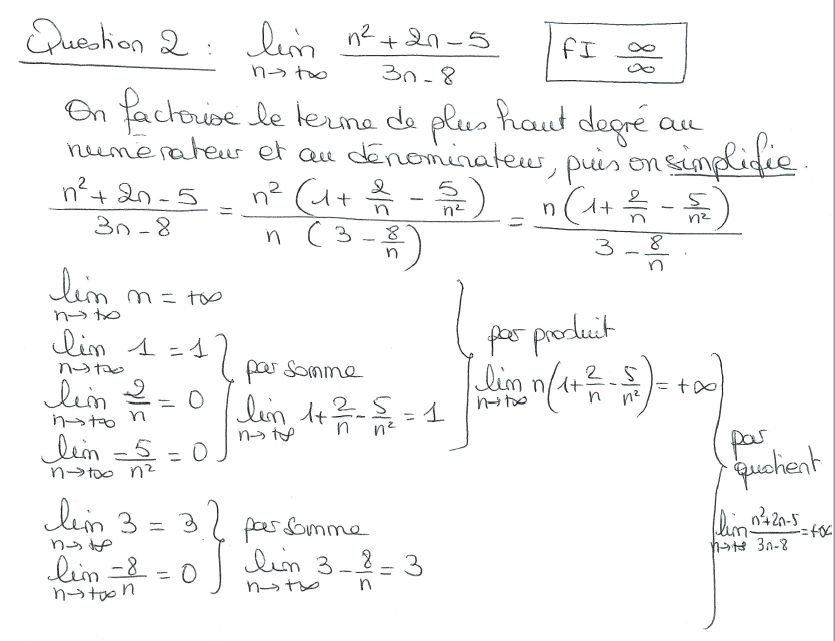 Question 2 : lim n→+∞ (n² + 2n - 5)/(3n - 8) FI ∞/∞
On factorise le terme de plus haut degré au
numérateur et au dénominateur, puis on simplifie.
(n² + 2n - 5)/(3n - 8) = n² (1 + 2/n - 5/n²)/(n (3 - 8/n)) = n (1 + 2/n - 5/n²)/(3 - 8/n).
lim n→+∞ n = +∞
lim n→+∞ 1 = 1
lim n→+∞ 2/n = 0
lim n→+∞ -5/n² = 0
par somme
lim n→+∞ 1 + 2/n - 5/n² = 1
par produit
lim n→+∞ n (1 + 2/n - 5/n²) = +∞
lim n→+∞ 3 = 3
lim n→+∞ -8/n = 0
par somme
lim n→+∞ 3 - 8/n = 3
par
quotient
lim n→+∞ (n²+2n-5)/(3n-8) = +∞